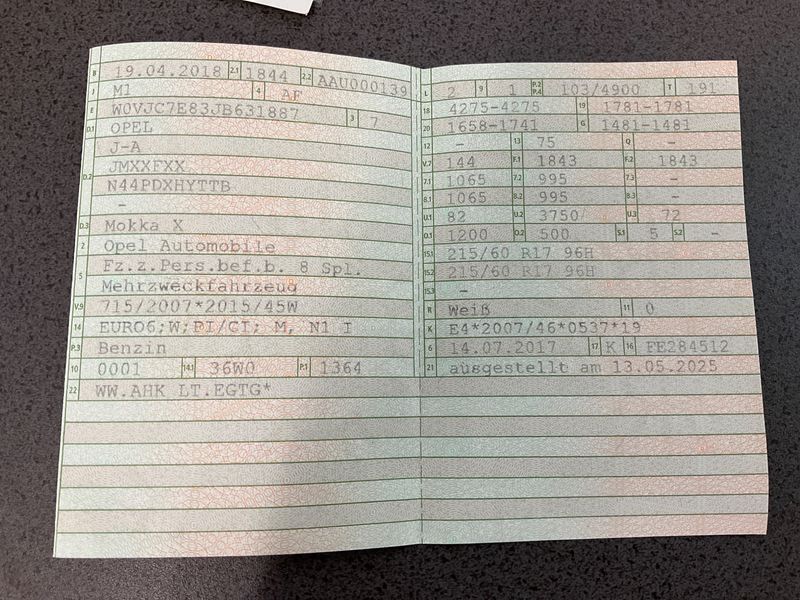 B 19.04.2018 2.1 1844 2.2 AAU000139
J M1 4 AF
E W0VJC7E83JB631887 3 7
D.1 OPEL
D.2 J-A
JMXXFXX
N44PDXHYTTB
-
D.3 Mokka X
2 Opel Automobile
5 Fz.z.Pers.bef.b. 8 Spl.
Mehrzweckfahrzeug
V.9 715/2007*2015/45W
14 EURO6;W;PI/CI; M, N1 I
P.3 Benzin
10 0001 14.1 36W0 P.1 1364
22 WW.AHK LT.EGTG*
L 2 9 1 P.2 P.4 103/4900 T 191
18 4275-4275 19 1781-1781
20 1658-1741 G 1481-1481
12 - 13 75 Q -
V.7 144 F.1 1843 F.2 1843
7.1 1065 7.2 995 7.3 -
8.1 1065 8.2 995 8.3 -
U.1 82 U.2 3750 U.3 72
O.1 1200 O.2 500 S.1 5 S.2 -
15.1 215/60 R17 96H
15.2 215/60 R17 96H
15.3 -
R Weiß 11 0
K E4*2007/46*0537*19
6 14.07.2017 17 K 16 FE284512
21 ausgestellt am 13.05.2025